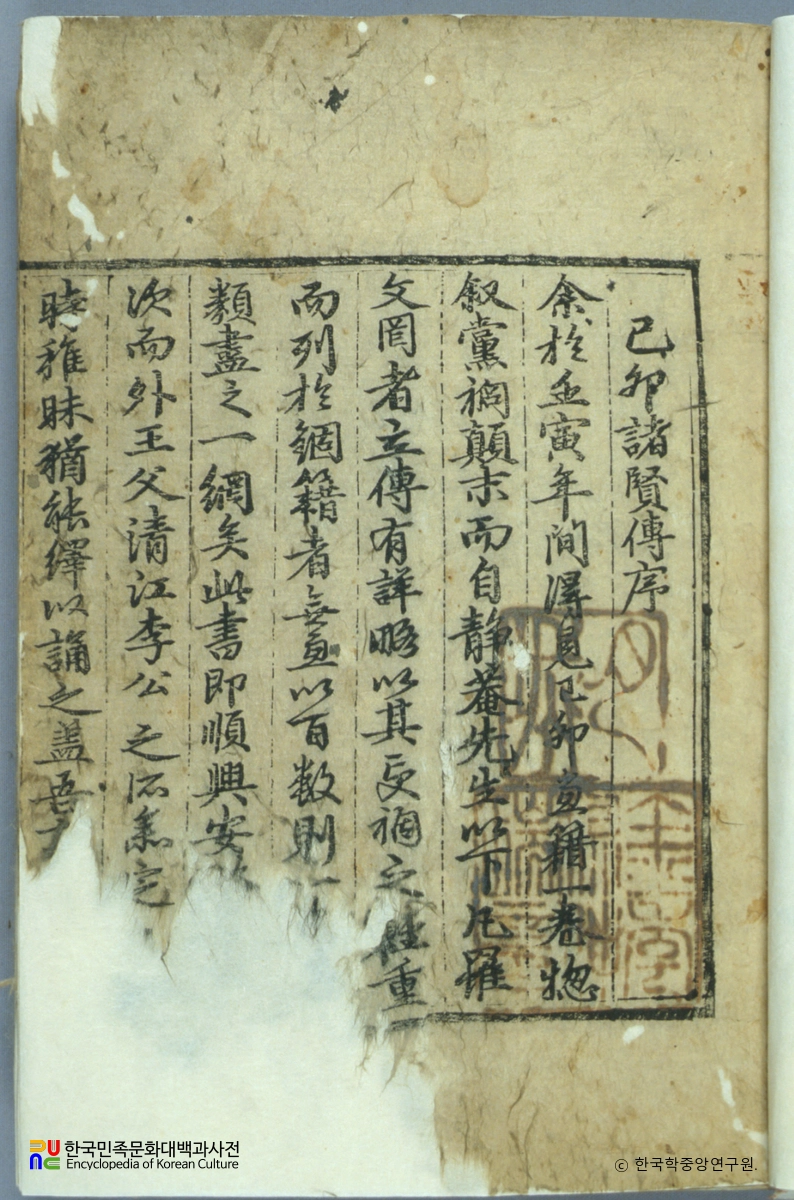 己卯諸賢傳序
余於壬寅年間得見己卯黨籍一卷惣
叙黨禍顛末而自靜菴先生以下凡羅
文罔者立傳有詳略以其受禍之輕重
而列於錮籍者無慮以百數則一
類盡之一網矣此書即順興安
次而外王父清江李公之所
時稚昧猶能繹以誦之盖吾
한국민족문화대백과사전
Encyclopedia of Korean Culture
© 한국학중앙연구원.